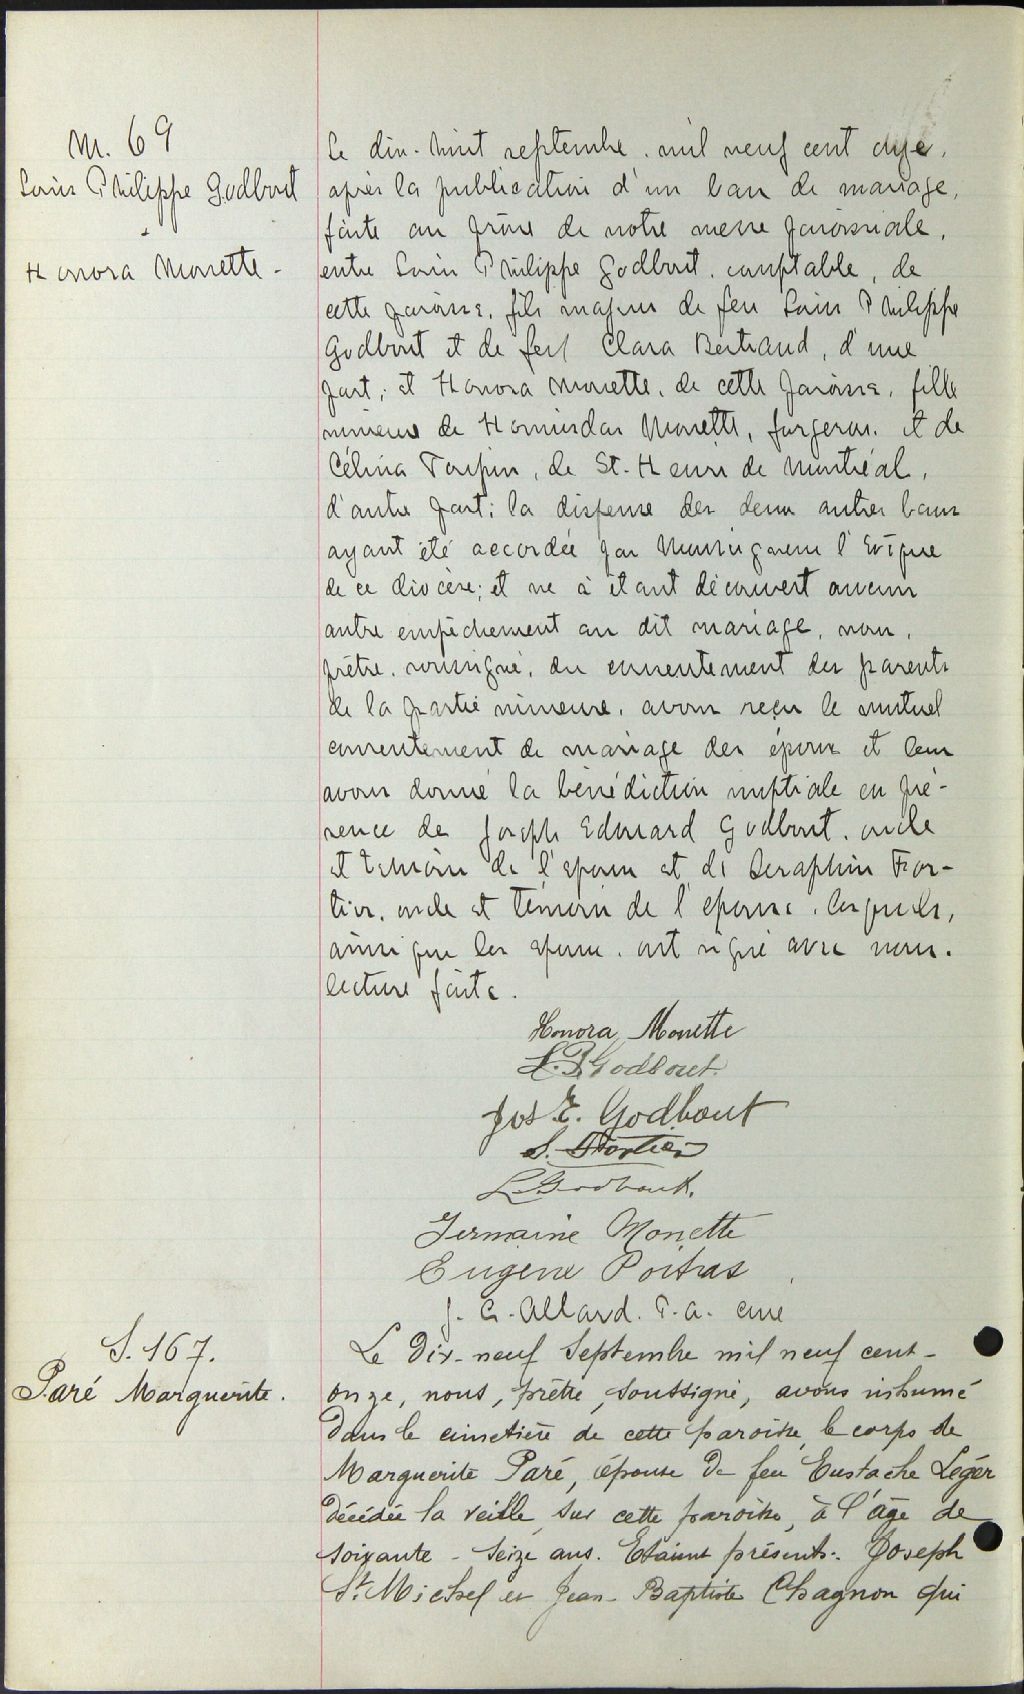 M. 69
Louis Philippe Godbout
&
Honora Monette -
Le dix-huit septembre, mil neuf cent onze,
après la publication d'un ban de mariage,
faite au prône de notre messe paroissiale,
entre Louis Philippe Godbout, comptable, de
cette paroisse, fils majeur de feu Louis Philippe
Godbout et de feu Clara Bertrand, d'une
part; et Honora Monette, de cette paroisse, fille
mineure de Hormisdas Monette, forgeron, et de
Célina Toupin, de St-Henri de Montréal,
d'autre part; la dispense des deux autres bans
ayant été accordée par Monseigneur l'Evêque
de ce diocèse; et ne s'étant découvert aucun
autre empêchement au dit mariage, nous,
prêtre, soussigné, du consentement des parents
de la partie mineure, avons reçu le mutuel
consentement de mariage des époux et leur
avons donné la bénédiction nuptiale en pré-
sence de Joseph Edouard Godbout, oncle
et témoin de l'époux et de Seraphin For-
tier, oncle et témoin de l'épouse, lesquels,
ainsi que les époux, ont signé avec nous.
lecture faite.
Honora Monette
L. P. Godbout.
Jos E. Godbout
S. Fortier
L Godbout.
Germaine Monette
Eugene Poitras
J. C. Allard. P. A. curé
S. 167.
Paré Marguerite.
Le dix-neuf Septembre mil neuf cent-
onze, nous, prêtre, soussigné, avons inhumé
dans le cimetière de cette paroisse, le corps de
Marguerite Paré, épouse de feu Eustache Legér
décédée la veille, sur cette paroisse, à l'âge de
soixante-seize ans. Etaient présents: Joseph
St. Michel et Jean-Baptiste Chagnon qui